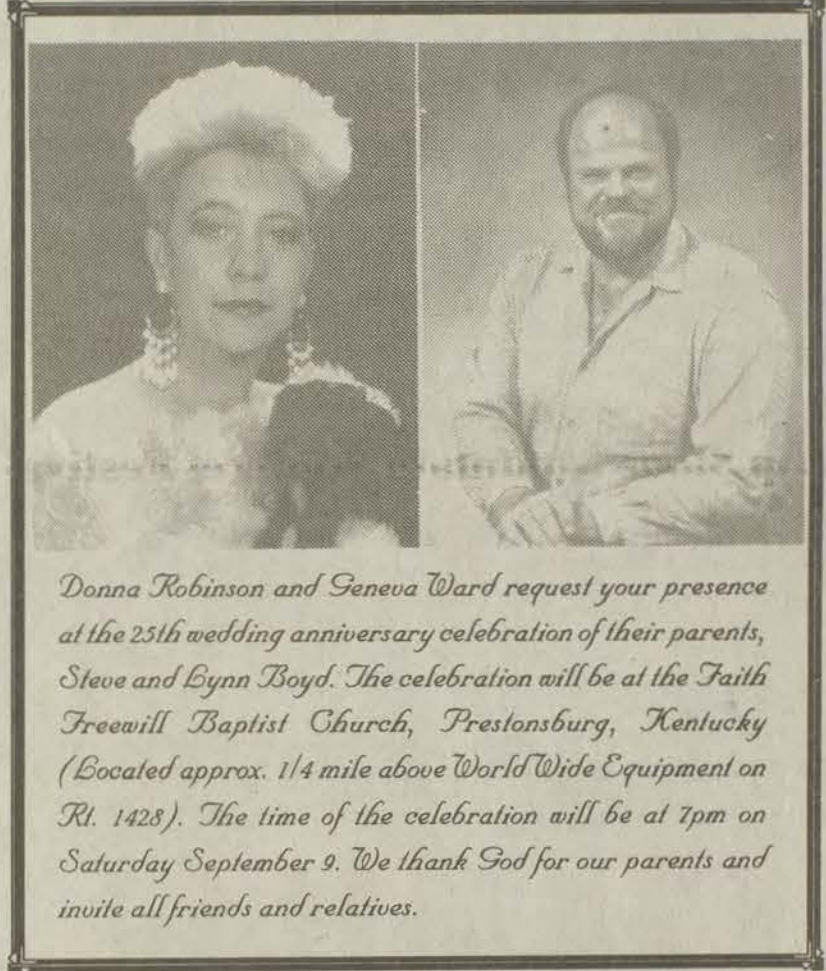 Donna Robinson and Geneva Ward request your presence
at the 25th wedding anniversary celebration of their parents,
Steve and Lynn Boyd. The celebration will be at the Faith
Freewill Baptist Church, Prestonsburg, Kentucky
(Located approx. 1/4 mile above World Wide Equipment on
Rt. 1428). The time of the celebration will be at 7pm on
Saturday September 9. We thank God for our parents and
invite all friends and relatives.